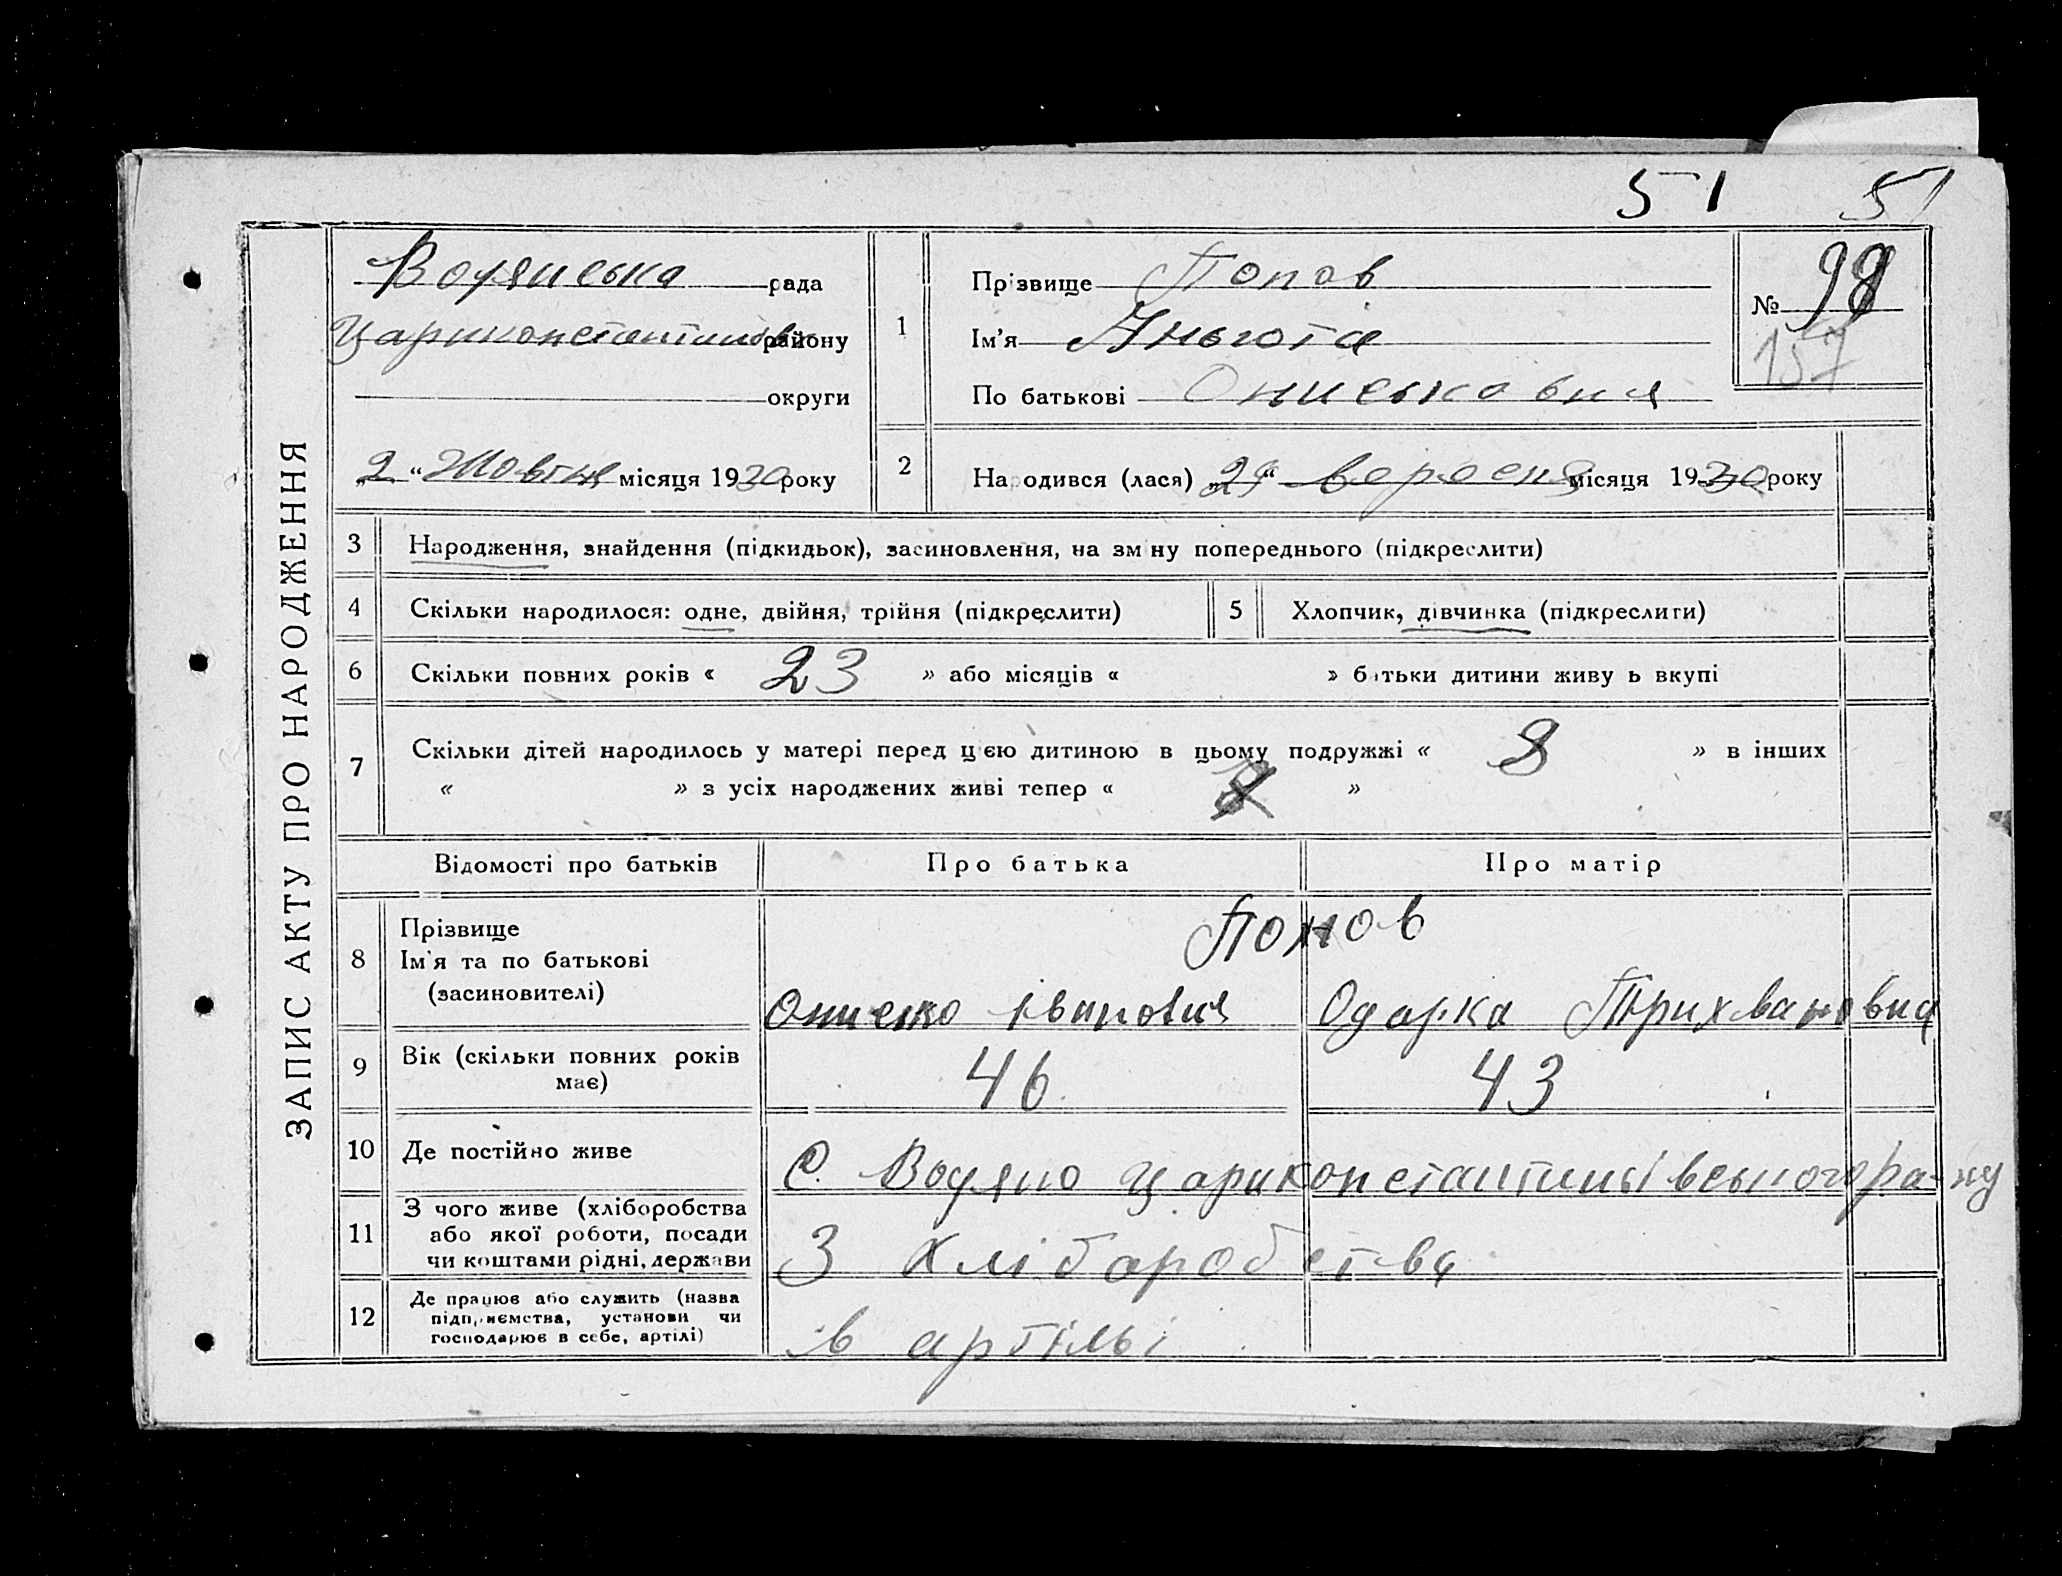 51 51
ЗАПИС АКТУ ПРО НАРОДЖЕННЯ
Водянська рада
округи
2 " Жовтня місяця 1930 року
1
Прізвище Попов
Ім'я
По батькові
№ 98
157
2
Народився (лася) „ 29 " вересня місяця 1930 року
3 Народження, знайдення (підкидьок), засиновлення, на зміну попереднього (підкреслити)
4 Скільки народилося: одне, двійня, трійня (підкреслити)
5 Хлопчик, дівчинка (підкреслити)
6 Скільки повних років « 23 » або місяців « » батьки дитини живуть вкупі
7 Скільки дітей народилось у матері перед цією дитиною в цьому подружжі « 8 » в інших
« » з усіх народжених живі тепер « »
Відомості про батьків Про батька Про матір
8 Прізвище Попов
Ім'я та по батькові
(засиновителі)
Онисько Іванович Одарка Трихвановна
9 Вік (скільки повних років
має)
46 43
10 Де постійно живе С. Водяно
11 З чого живе (хліборобства
або якої роботи, посади
чи коштами рідні, держави
З хліборобства
12 Де працює або служить (назва
підприємства, установи чи
господарює в себе, артілі)
в артільі